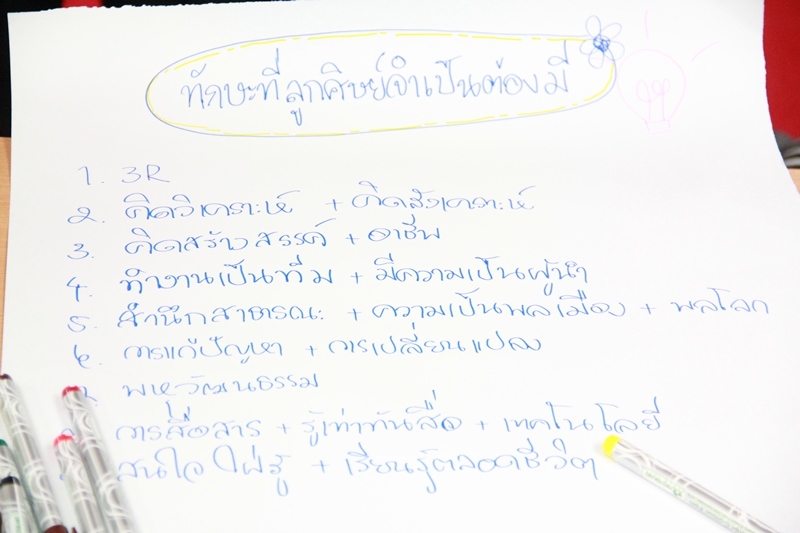 ทักษะที่ลูกศิษย์จำเป็นต้องมี
1. 3R
2. คิดวิเคราะห์ + คิดสังเคราะห์
3. คิดสร้างสรรค์ + อาชีพ
4. ทำงานเป็นทีม + มีความเป็นผู้นำ
5. สำนึกสาธารณะ + ความเป็นพลเมือง + พลโลก
6. การแก้ปัญหา + การเปลี่ยนแปลง
พหุวัฒนธรรม
การสื่อสาร + รู้เท่าทันสื่อ + เทคโนโลยี
สนใจใฝ่รู้ + เรียนรู้ตลอดชีวิต